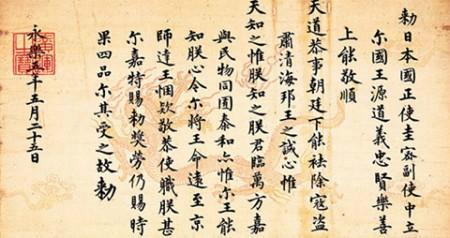 勅日本國正使圭密副使中立
尓國王源道義忠賢樂善
上能敬順
天道恭事朝廷下能祛除寇盜
肅清海邦王之誠心惟
天知之惟朕知之朕君臨萬方嘉
與民物同囿泰和亦惟尓王能
知朕心今尓將王命遠至京
師達王悃欵敬恭使職朕甚
尓嘉特賜勅奬勞仍賜時
果四品尓其受之故勅
永樂五年五月二十五日